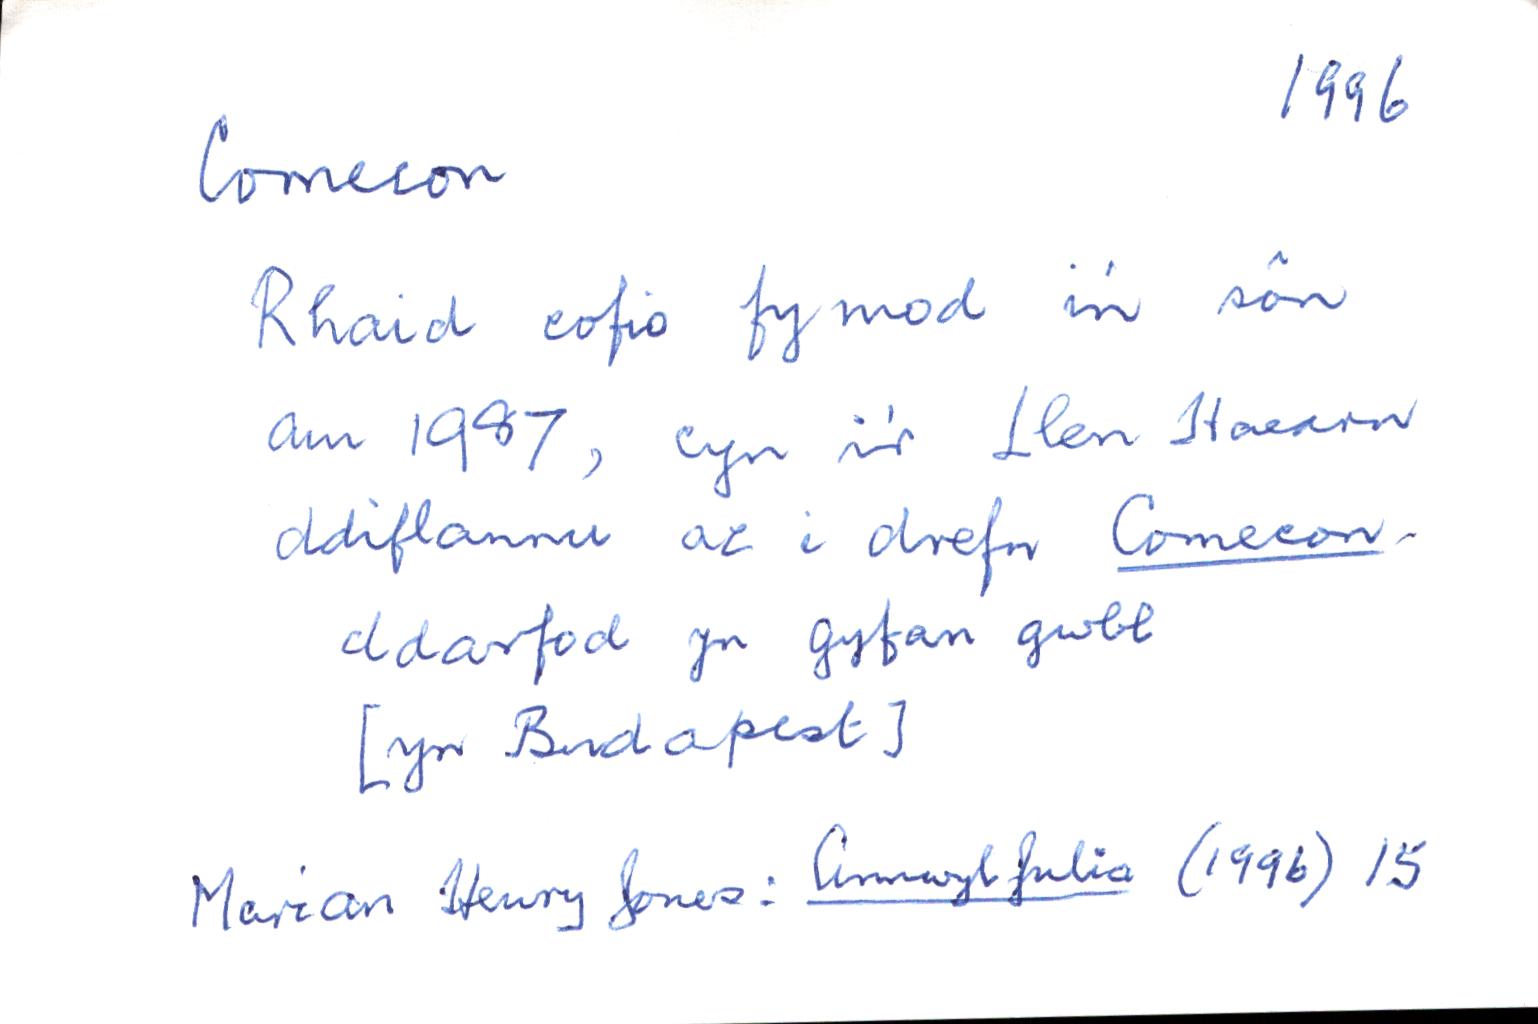 1996
Comecon
Rhaid cofio fy mod i'n sôn
am 1987, cyn i'r Llen Haearn
ddiflannu ac i drefn Comecon
ddarfod yn gyfan gwbl
[yn Budapest]
Marian Henry Jones: Annwyl Julia (1996) 15